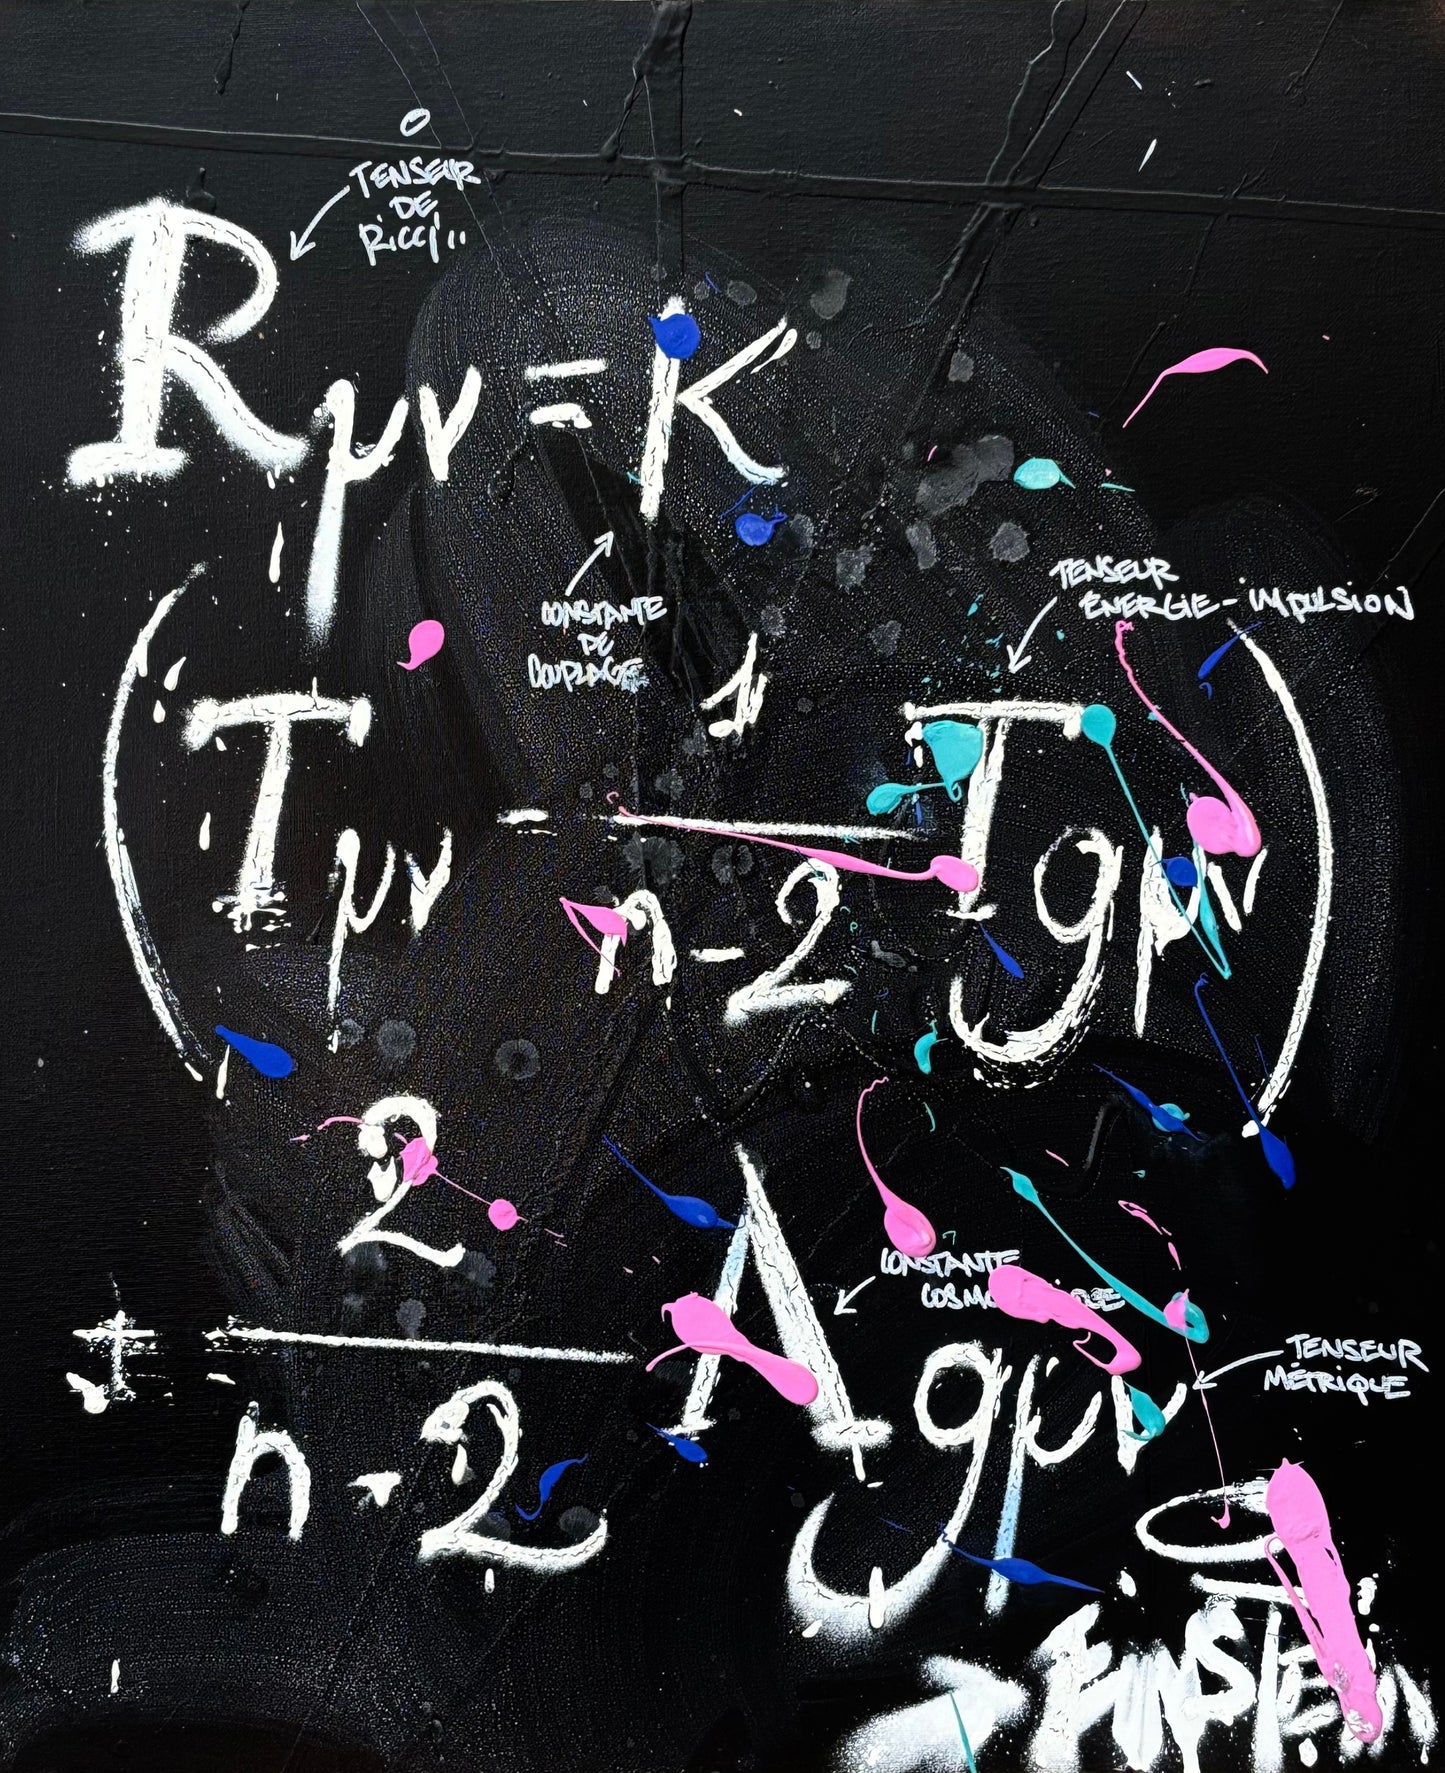 TENSEUR
DE
RiCCi
Rμν = K
CONSTANTE
DE
COUPLAGE
TENSEUR
ÉNERGIE-IMPULSION
(Tμν - 1
n-2 Tgμν)
+ 2
n-2 Λgμν
CONSTANTE
TENSEUR
MÉTRIQUE
EINSTEIN